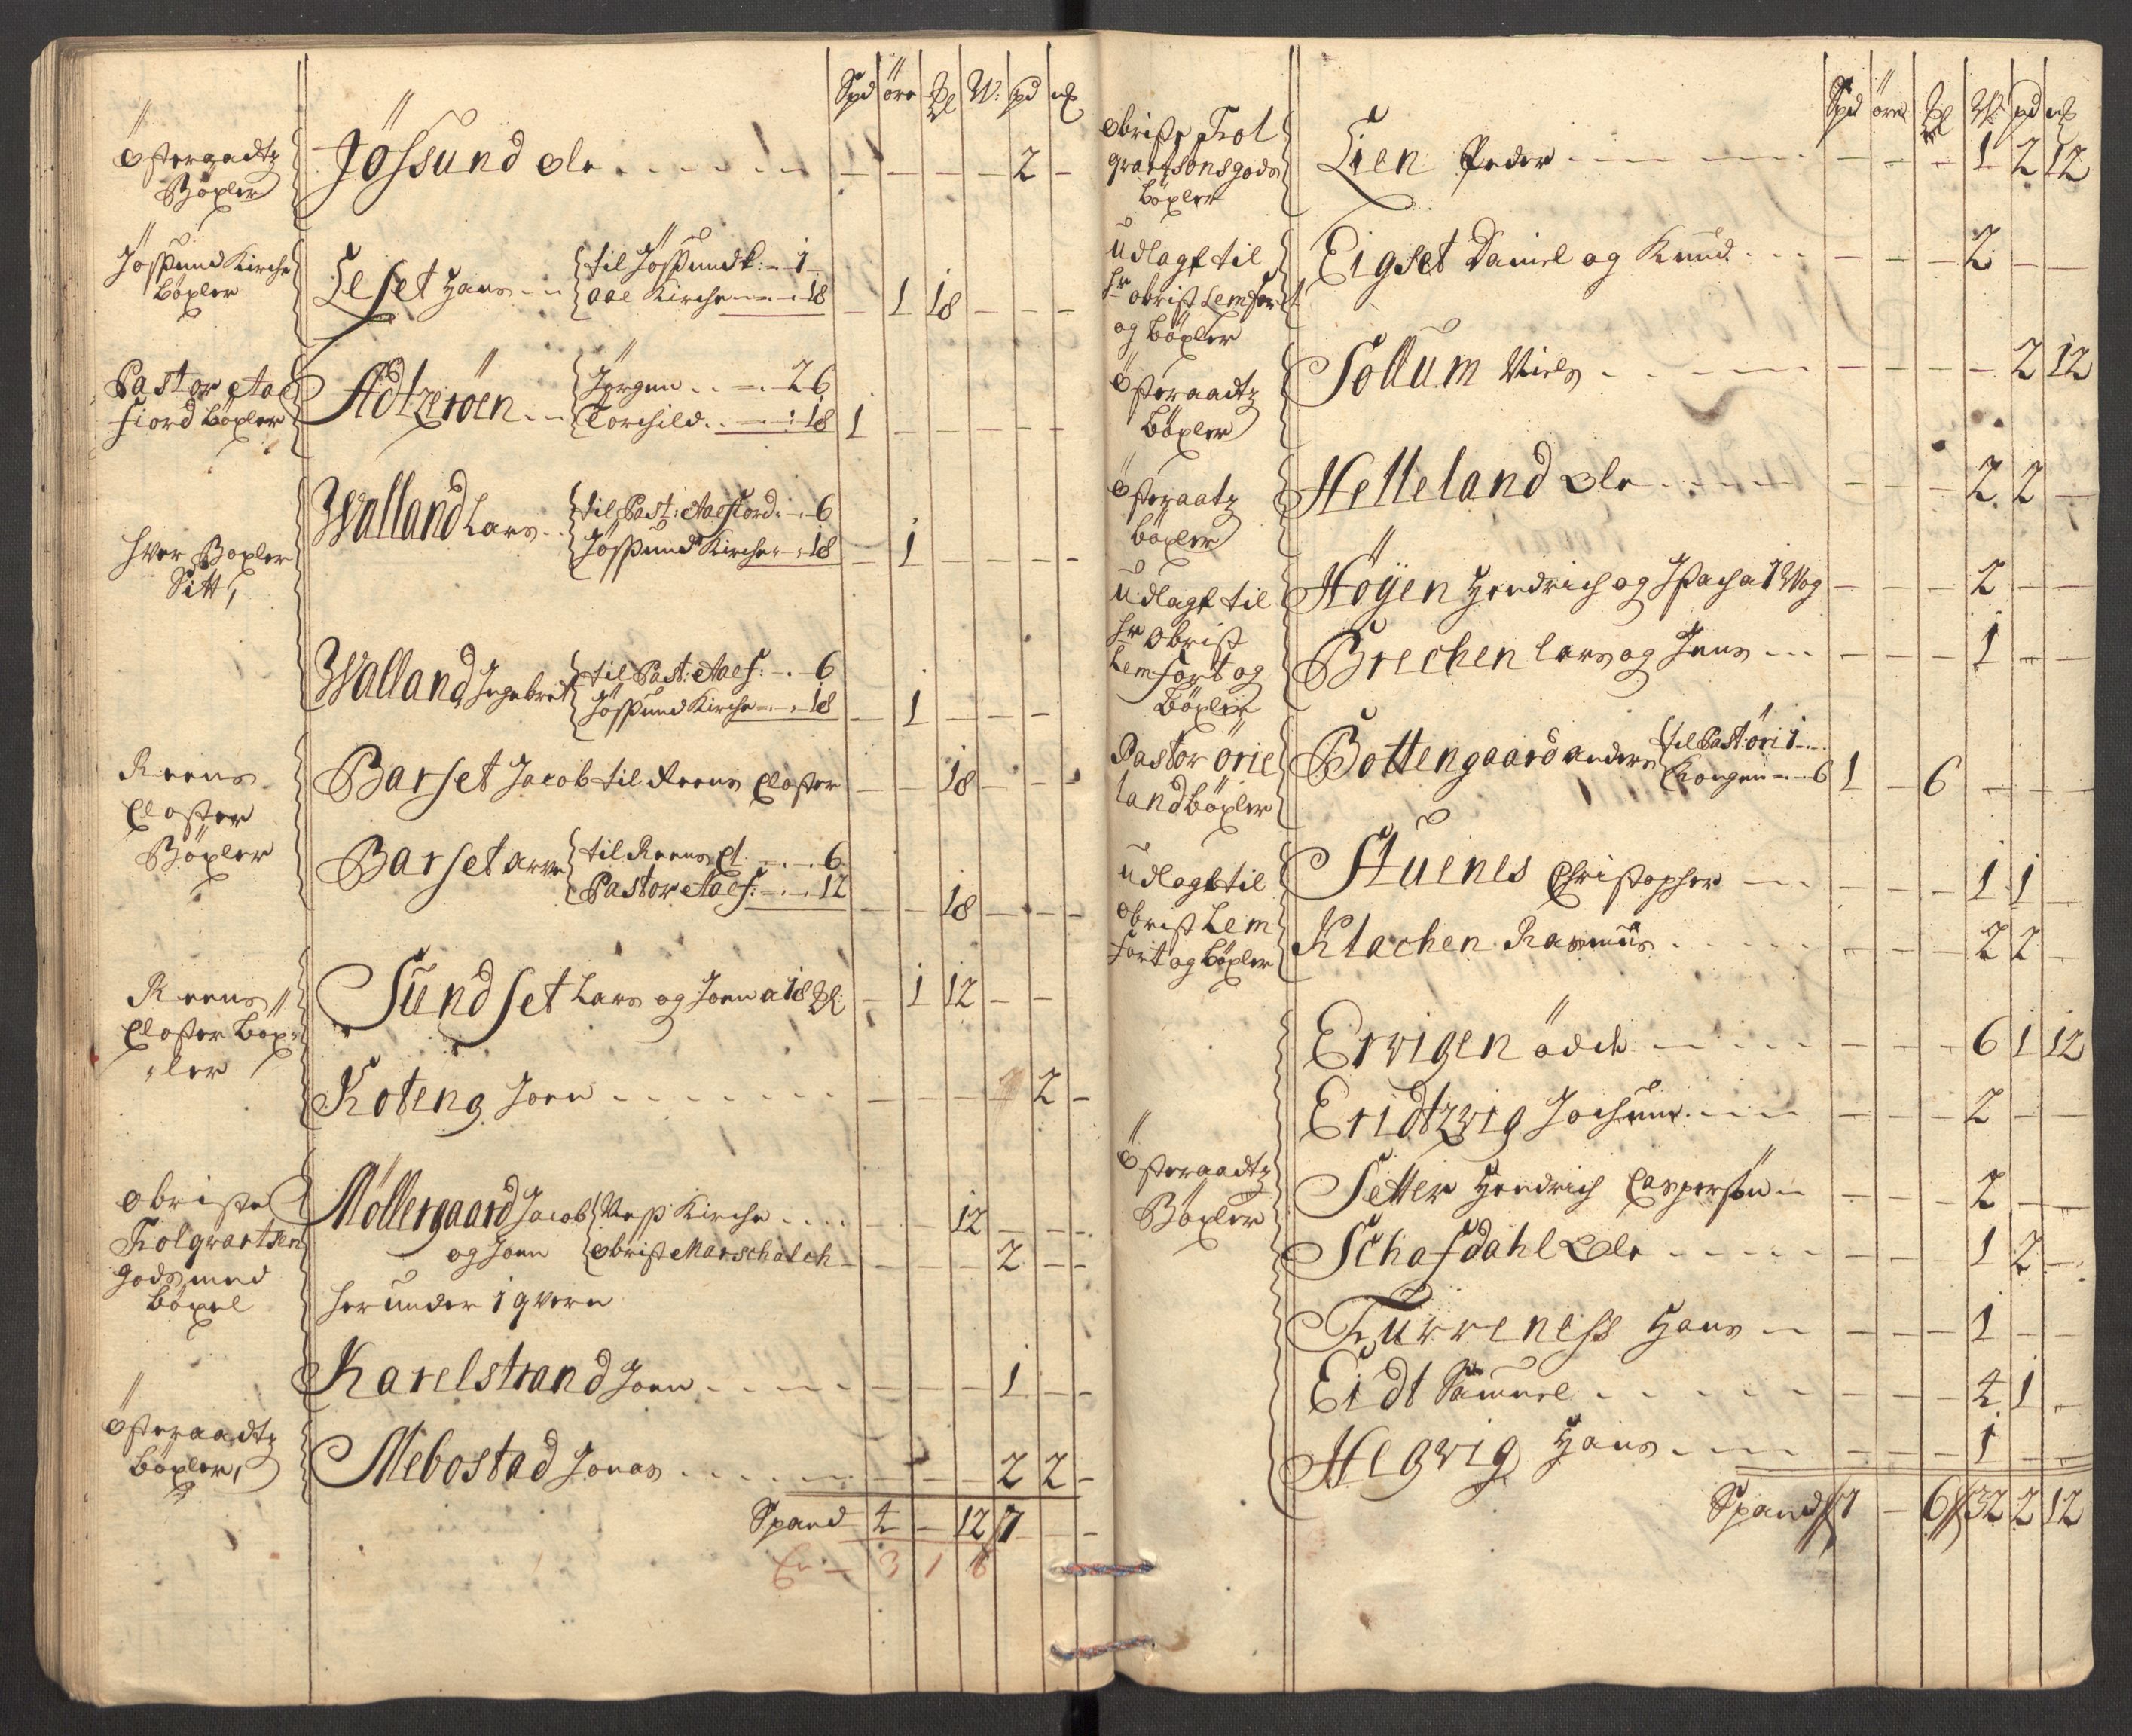 Spd öre Ml W: pd mk
Österaadtz Böxler
Jössund Ole - - - - 2 -
Jössund Kirche Böxler
Leset Hans { til Jössund k: - 1
Aae Kirche - 18 - 1 18 - - -
Pastor Aae fiord Böxler
Adtzeröen { Jörgen - 26
Torchild - 18 1 - - - - -
hver Boxler Sitt,
Walland Lars { til Past: Aaefiord - 6
Jössund Kirche - 18 - 1 - - - -
Walland Ingebret { til Past: Aaef: - 6
Jössund Kirche - 18 - 1 - - -
Reens Closter Böxler
Barset Jacob til Reens Closter - - 18 - - -
Barset Arve { til Reens Cl. - 6
Pastor Aaef: - 12 - - 18 - - -
Reens Closter Böx-
ler
Sundset Lars og Joen a 18 Ml: - 1 12 - -
Koteng Joen - - - - 2 -
Obriste
Kolgvartsen
gods med
böxel
Möllergaard Jacob { Ness Kirche - - 12 - - -
og Joen { Obrist Marschalch - - - 2 - -
herunder 1 qvern
Karelstrand Joen - - - 1 - -
Österaadtz
böxler,
Mebostad Jonas - - - 2 2 -
Spand 4 - 12 7 - -
3 1 6
Spd öre Ml W: pd mk
Obriste Kol
gvartsons gods
böxler
Lien Peder - - - 1 2 12
Udlagt til
hr Obrist Lemfort
og Böxler
Eigset Daniel og Knud - - - 2 - -
Österaadtz
Böxler
Sollum Niels - - - - 2 12
Österaatz
böxler
Helleland Ole - - - 2 2 -
Udlagt til
hr Obrist
Lemfort og
Böxler
Höyen Hendrich og Isach a 1 Wog - - - 2 - -
Brechen Lars og Jens - - - 1 - -
Pastor Örie
land böxler
Bottengaard Anders { til Past: öri 1 -
Kongen - 6 1 - 6 - - -
Udlagt til
Obrist Lem
fort og Böxler
Stuenes Christopher - - - 1 1 -
Klachen Rasmus - - - 2 2 -
Ervigen öde - - - 6 1 12
Eridtzvig Jochum - - - 2 - -
Österaadtz
Böxler
Setter Hendrich Caspersön - - - 2 - -
Schafdahl Ole - - - 1 2 -
Kurreness Hans - - - 1 - -
Eidt Samuel - - - 4 1 -
Hegvig Hans - - - 1 - -
Spand 1 - 6 32 2 12